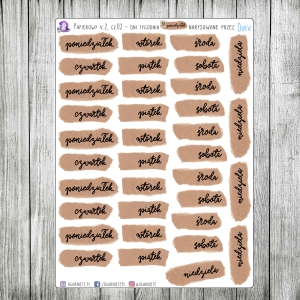 PAPIEROWO V.2, CZ.02 - DNI TYGODNIA
NARYSOWANE PRZEZ
poniedziałek wtorek środa
czwartek piątek sobota
niedziela
poniedziałek wtorek środa
czwartek piątek sobota
niedziela
poniedziałek wtorek środa
czwartek piątek sobota
niedziela
poniedziałek wtorek środa
czwartek piątek sobota
poniedziałek wtorek środa
niedziela
czwartek piątek sobota
niedziela